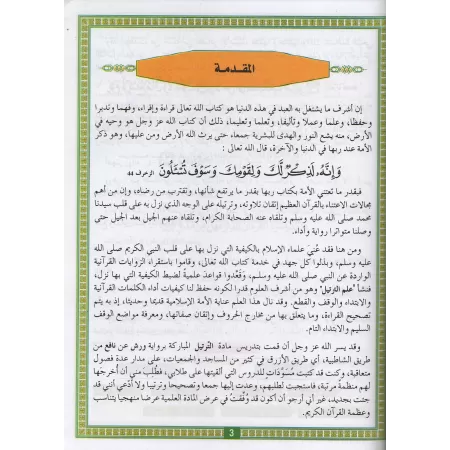 المقدمة
إن أشرف ما يشتغل به العبد في هذه الدنيا هو كتاب الله تعالى قراءة وإقراء، وفهما وتدبرا
وحفظا، وعلما وعملا وتأليفا، وتعلما وتعليما، ذلك أن كتاب الله عز وجل هو وحيه في
الأرض، منه يشع النور والهدى للبشرية جمعاء، حتى يرث الله الأرض ومن عليها، وهو ذكر
الأمة عند ربها في الدنيا والآخرة، قال الله تعالى :
وَإِنَّهُ لَذِكْرٌ لَّكَ وَلِقَوْمِكَ وَسَوْفَ تُسْـَٔلُونَ الزخرف 44
فبقدر ما تعتني الأمة بكتاب ربها بقدر ما يرتفع شأنها، وتقترب من رضاه، وإن من أهم
مجالات الاعتناء بالقرآن العظيم إتقان تلاوته، وترتيله على الوجه الذي نزل به على قلب سيدنا
محمد صلى الله عليه وسلم وتلقاه عنه الصحابة الكرام، وتلقاه عنهم الجيل بعد الجيل حتى
وصلنا متواترا رواية وأداء.
ومن هنا فقد عُنِيَ علماء الإسلام بالكيفية التي نزل بها على قلب النبي الكريم صلى الله
عليه وسلم، وبذلوا كل جهد في خدمة كتاب الله تعالى، وقاموا باستقراء الروايات القرآنية
الواردة عن النبي صلى الله عليه وسلم، وقَعَّدوا قواعد علمية لضبط الكيفية التي بها نزل،
فنشأ "علم الترتيل" وهو من أشرف العلوم قدرا لكونه حفظ لنا كيفيات أداء الكلمات القرآنية
والابتداء والوقف والقطع. وقد نال هذا العلم عناية الأمة الإسلامية قديما وحديثا، إذ به يتم
تصحيح القراءة، وما يتعلق بها من مخارج الحروف وإتقان صفاتها، ومعرفة مواضع الوقف
السليم والابتداء التام.
وقد يسر الله عز وجل أن قمت بتدريس مادة الترتيل المباركة برواية ورش عن نافع من
طريق الشاطبية، أي طريق الأزرق في كثير من المساجد والجمعيات، على مدار عدة فصول
متعاقبة، وكنت قد كتبت مُسَوَّدَات للدروس التي ألقيتها على طلابي، فطُلب مني أن أخرجها
لهم منظمة مرتبة، فاستجبت لطلبهم، وعدت إليها جمعا وتصحيحا وترتيبا ولا أدّعي أنني قد
جئت بجديد، غير أني أرجو أن أكون قد وُفِّقت في عرض المادة العلمية عرضا منهجيا يتناسب
وعظمة القرآن الكريم.
3